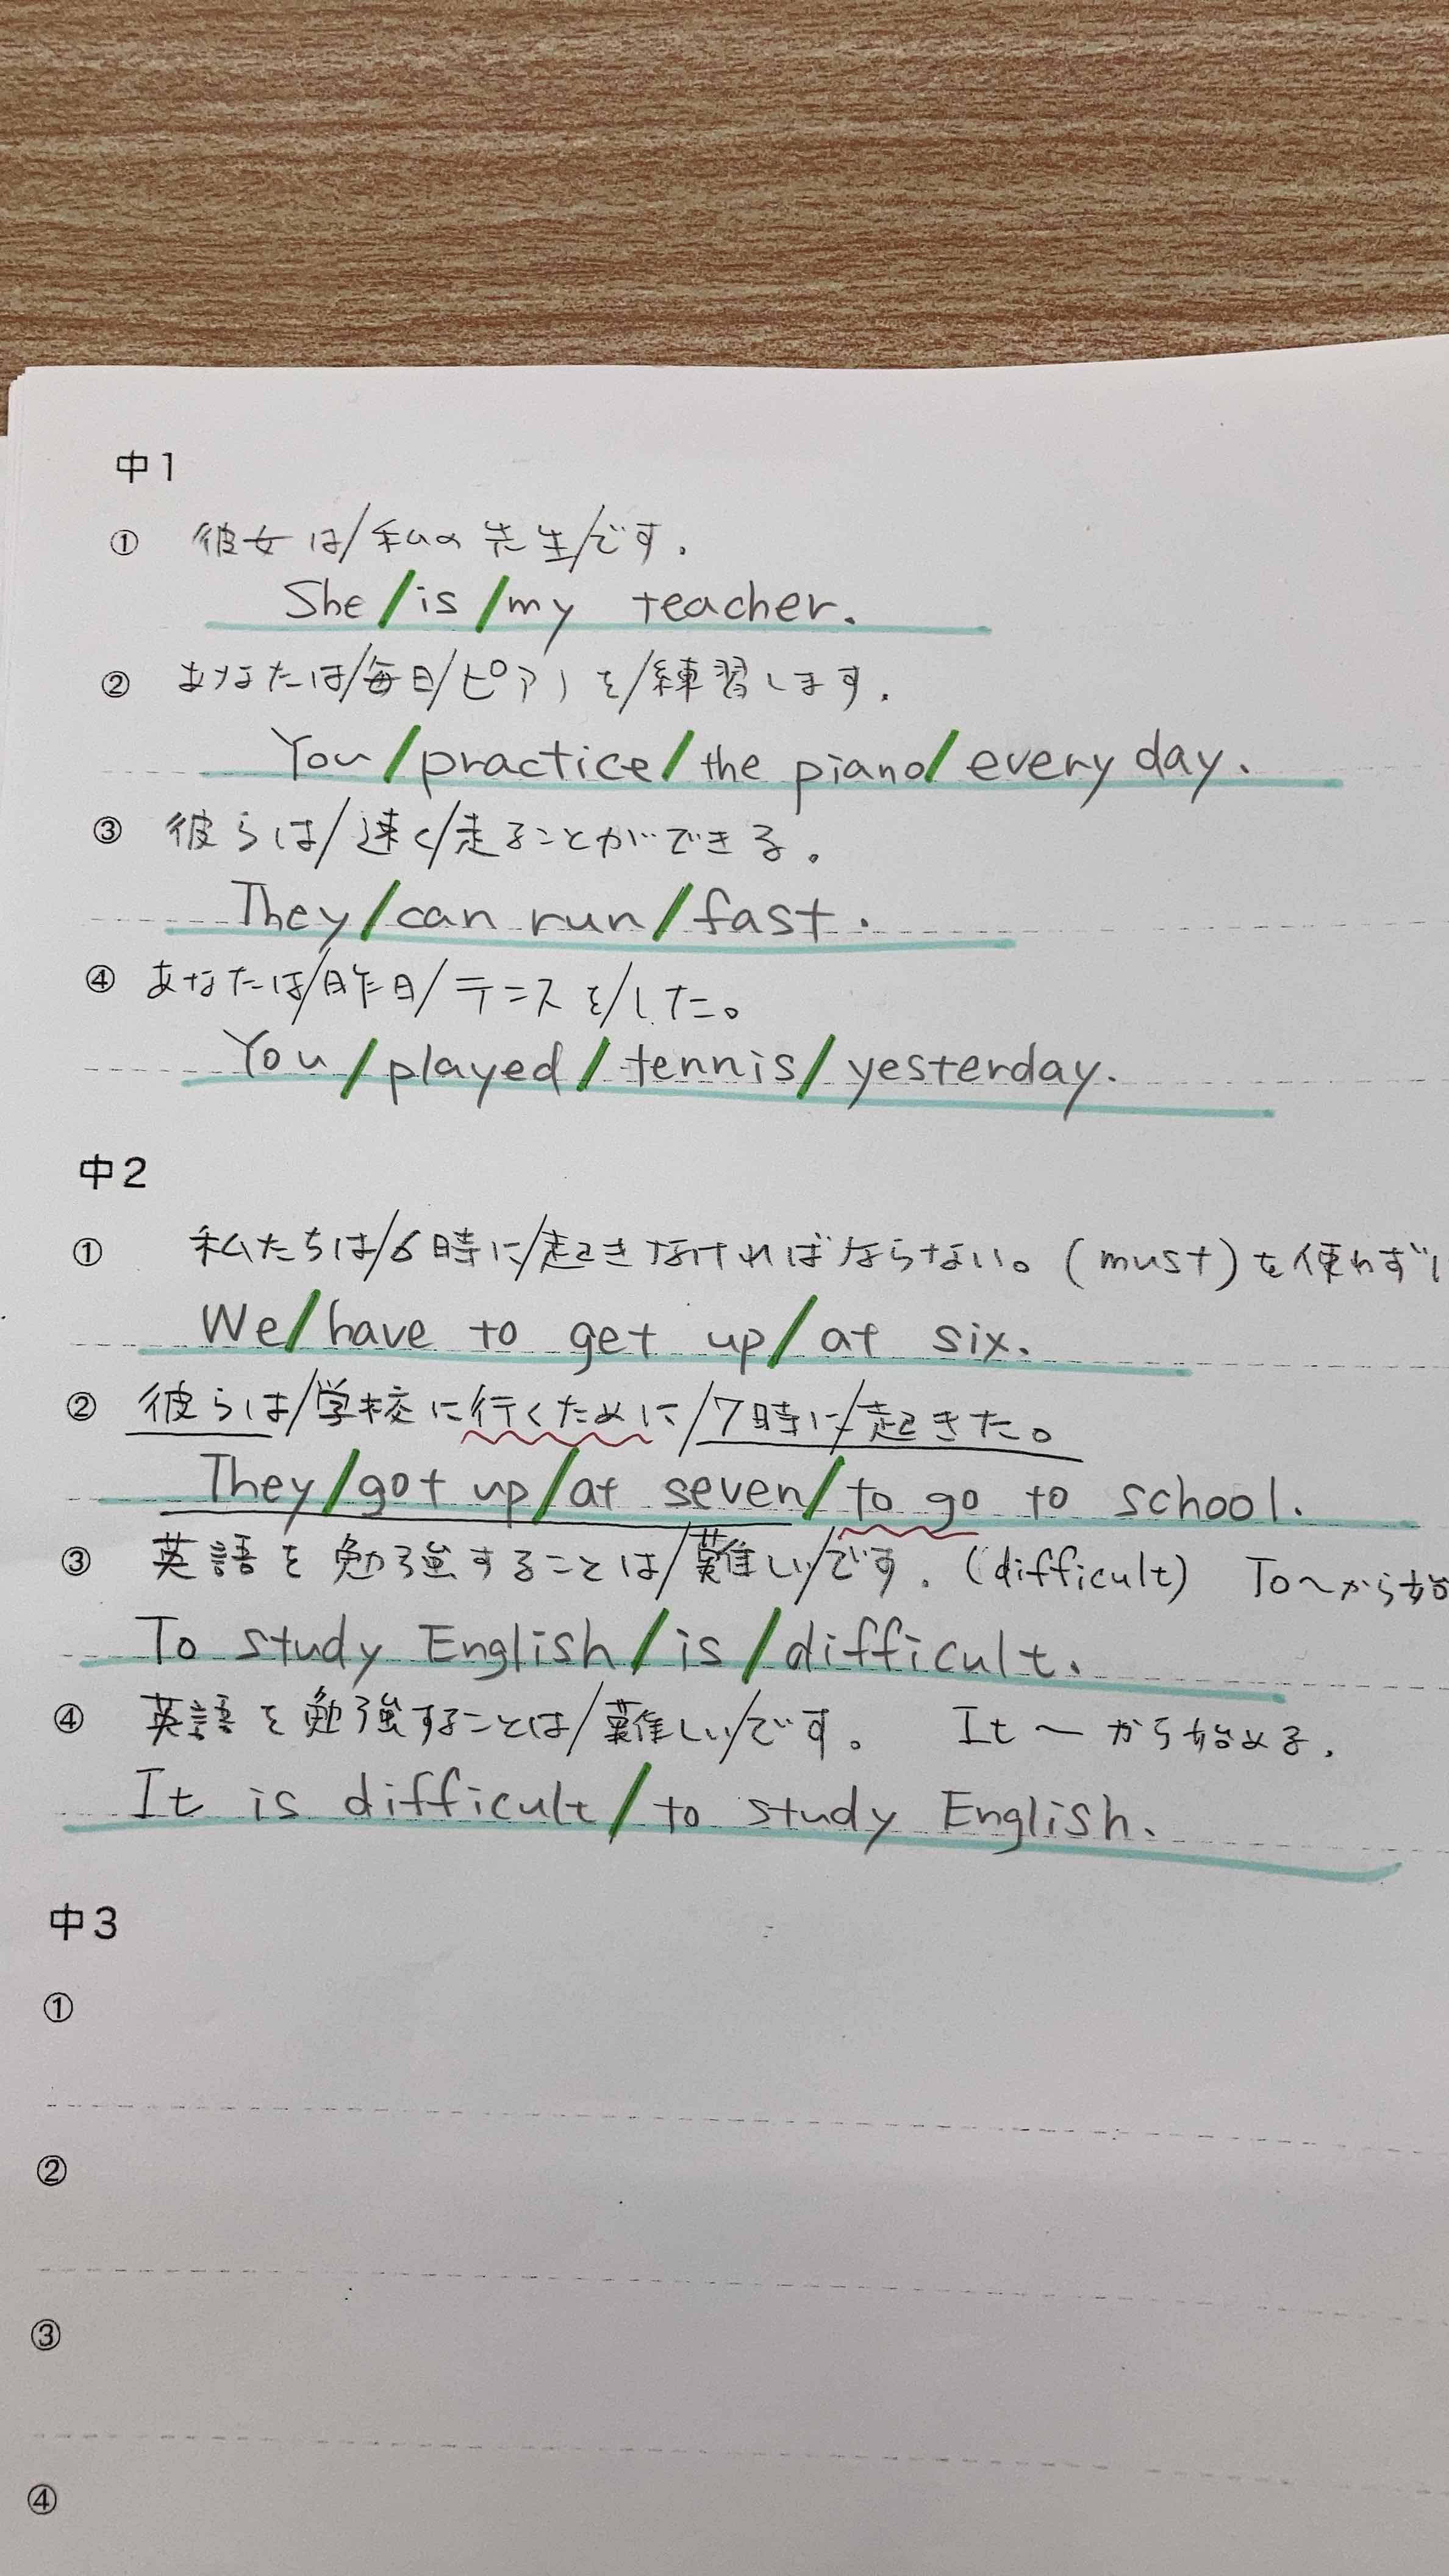 中1
① 彼女は/私の先生/です.
She/is/my teacher.
② あなたは/毎日/ピアノを/練習します.
You/practice/the piano/every day.
③ 彼らは/速く/走ることができる。
They/can run/fast.
④ あなたは/昨日/テニスを/した。
You/played/tennis/yesterday.
中2
① 私たちは/6時に/起きなければならない。(must)を使わず
We/have to get up/at six.
② 彼らは/学校に行くために/7時に/起きた。
They/got up/at seven/to go to school.
③ 英語を勉強することは/難しい/です. (difficult) To〜から始
To study English/is/difficult.
④ 英語を勉強することは/難しい/です。 It〜から始める.
It is difficult/to study English.
中3
①
②
③
④